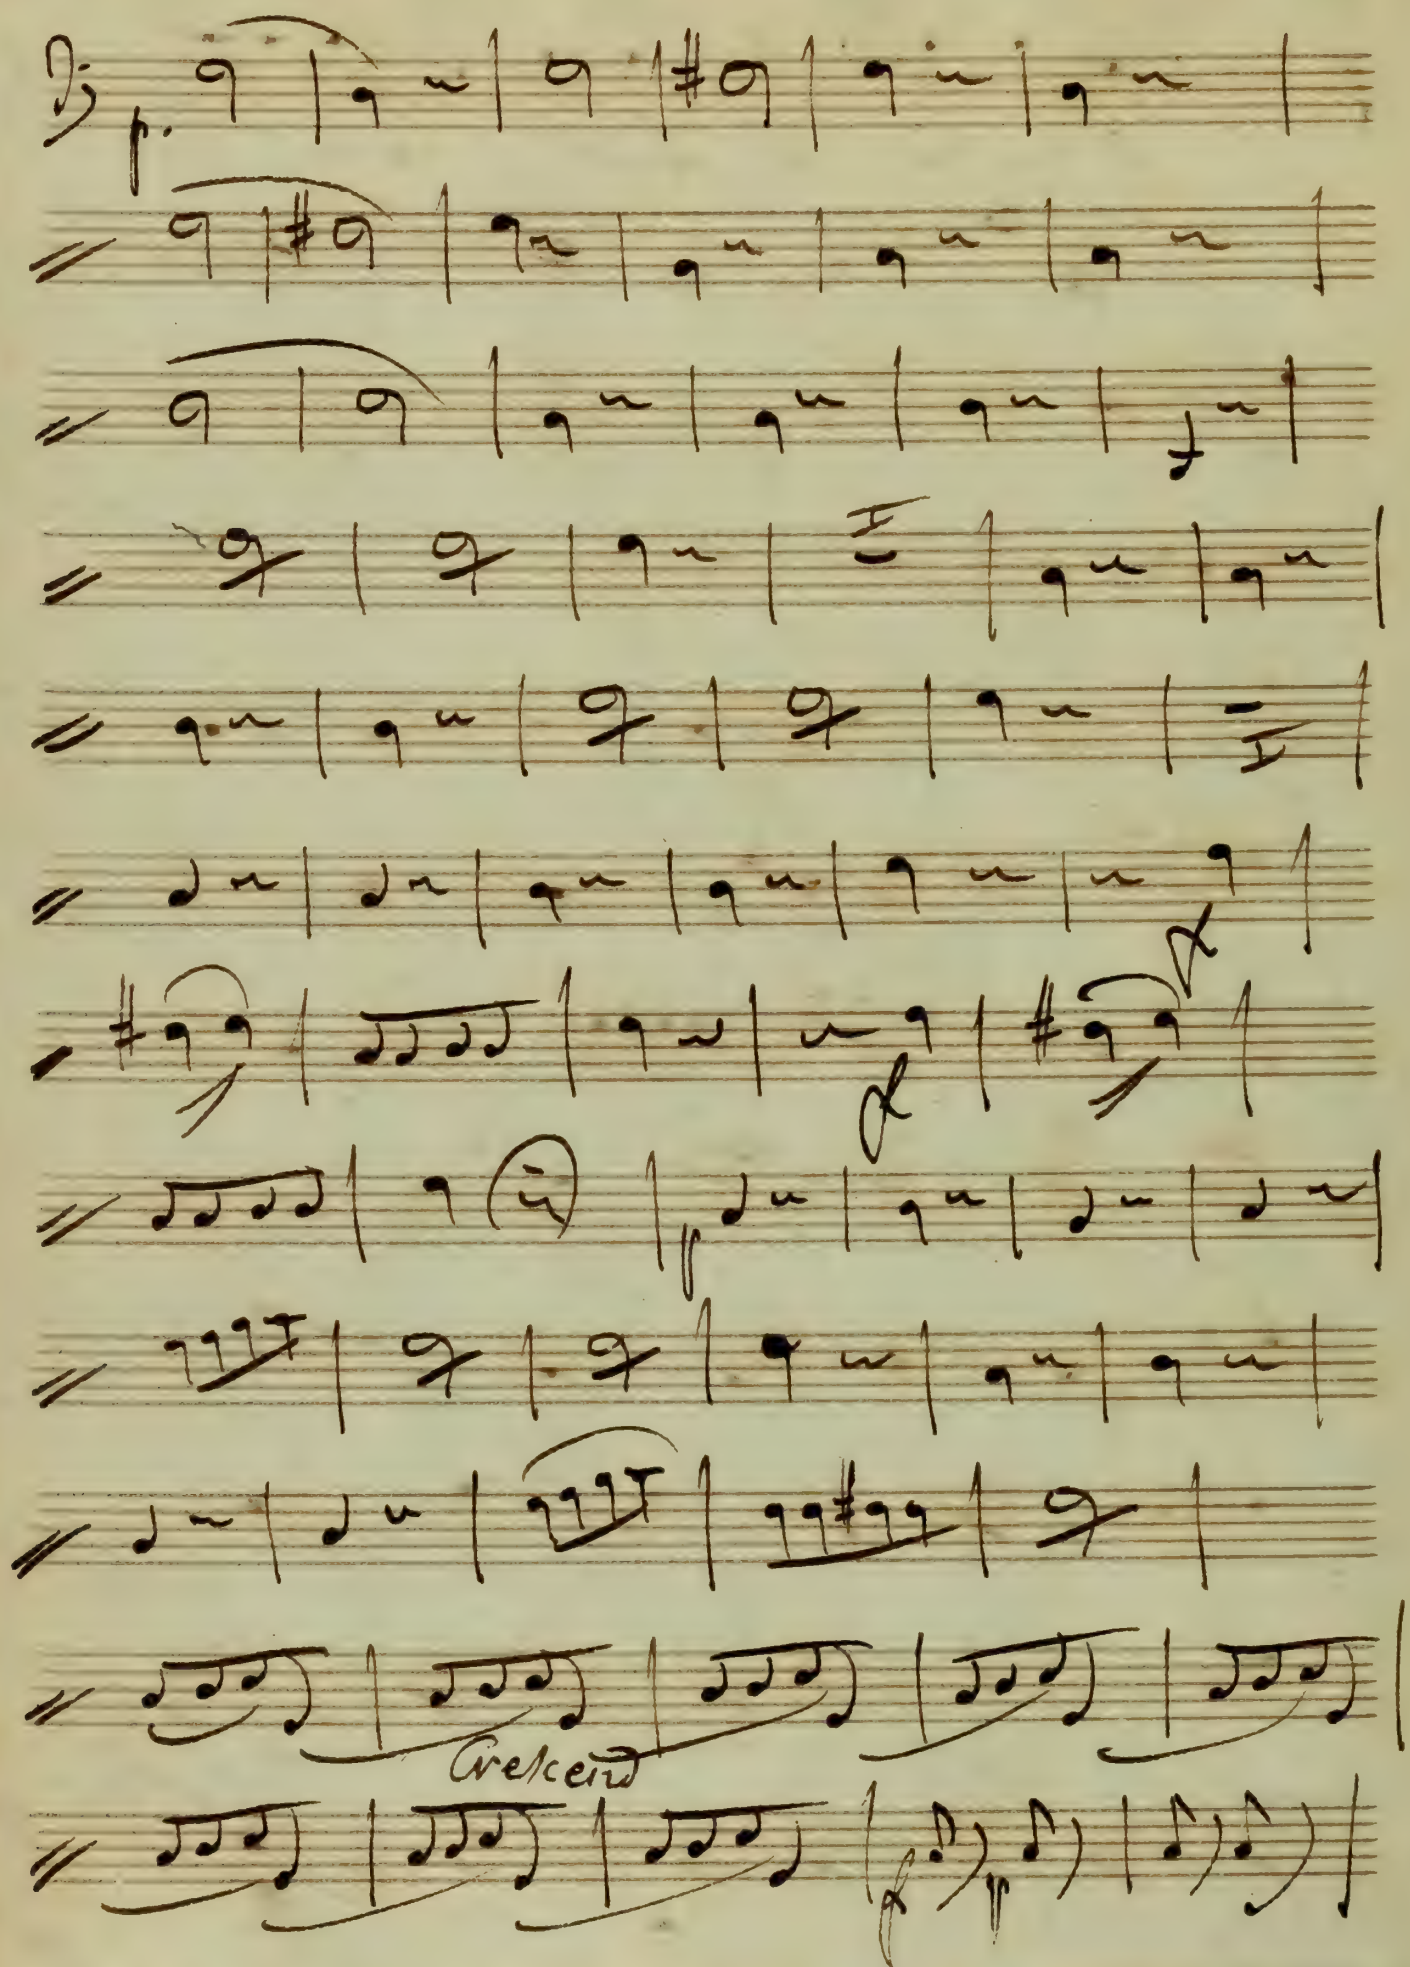 p.
I
I
f
f
p
Crescend
f p